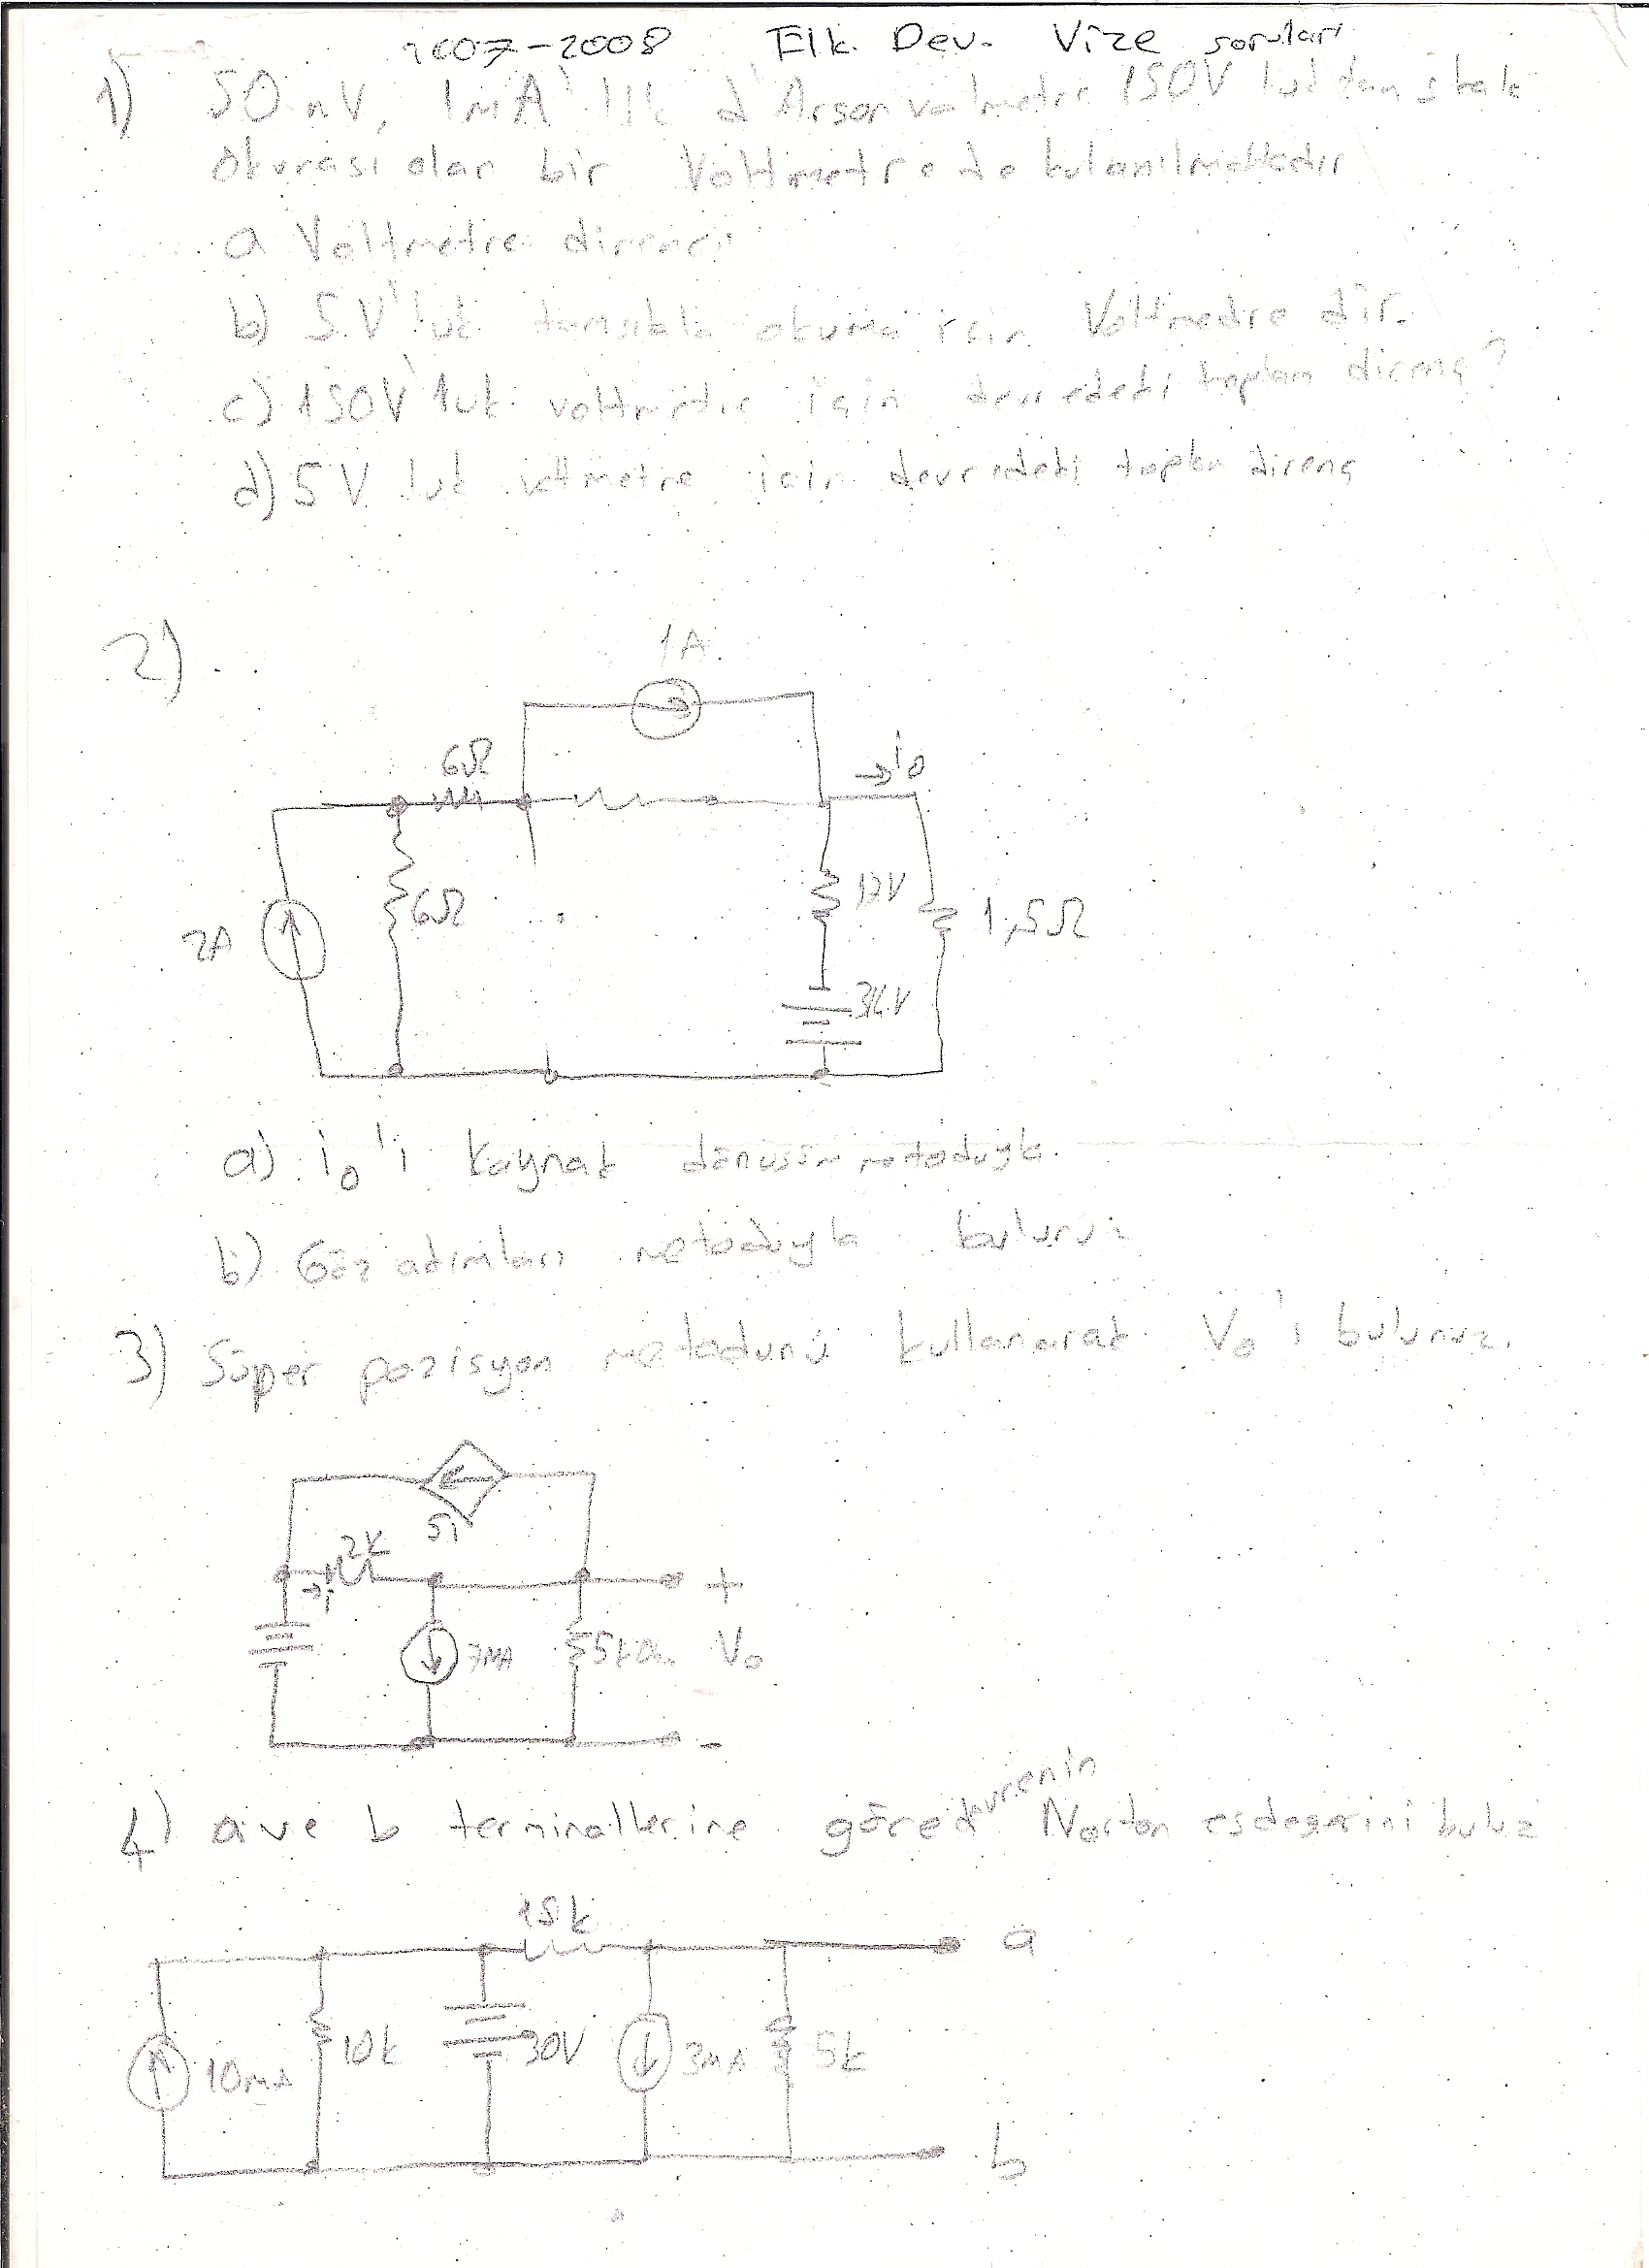 2007-2008 Elk. Dev. Vize soruları
1) 50 mV, 1mA'lık d'Arsonvalmetre 150V luk tam skala
okuması olan bir Voltmetrede kulanılmaktadır
a Voltmetre direnci
b) 5V'luk tamskala okuma için Voltmetre dir.
c) 150V'luk voltmetre için devredeki toplam direnç?
d) 5V luk voltmetre için devredeki toplam direnç
2)
1A
6Ω
→ i₀
2A
6Ω
12V
1,5Ω
a) i₀'i kaynak dönüşüm metoduyla.
b) Göz adımları metoduyla bulunuz
3) Süper pozisyon metodunu kullanarak V₀'ı bulunuz.
5i
2k
→i
+
7mA
V₀
-
4) a ve b terminallerine göre devrenin Norton esdegerini buluz
15k
a
10mA
10k
30V
3mA
5k
b